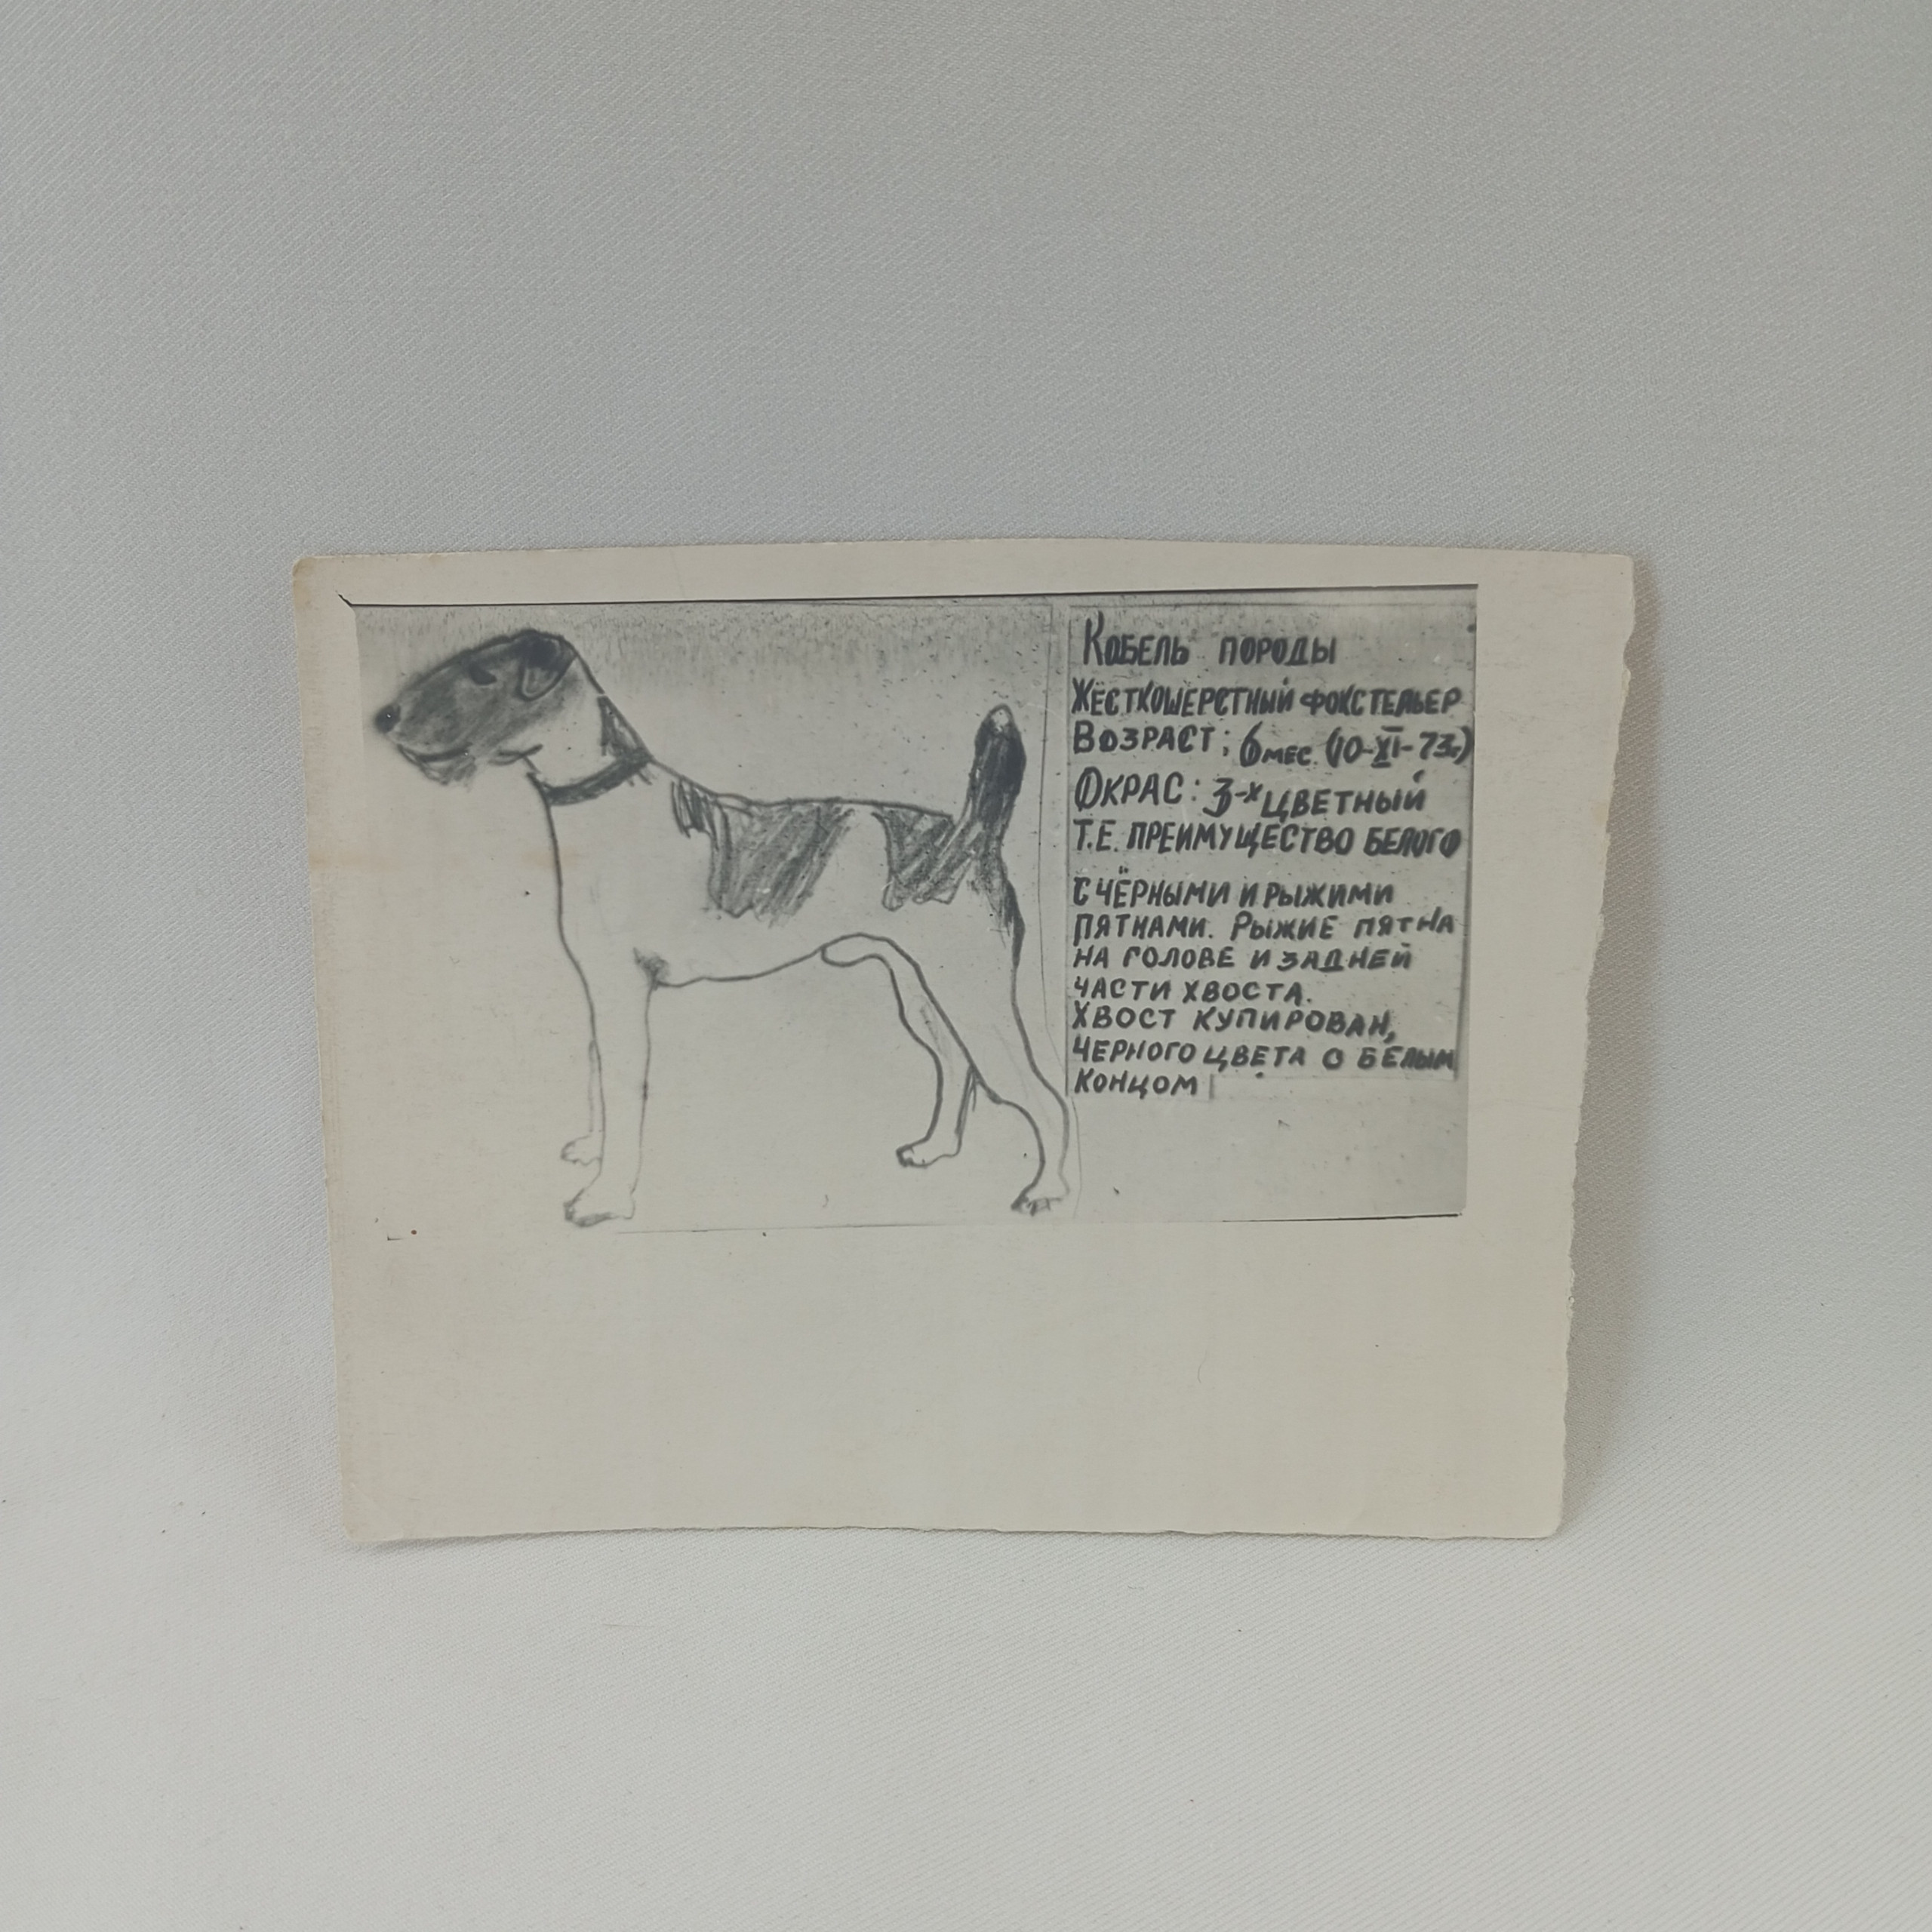 Кобель породы
жёсткошерстный фокстерьер
Возраст: 6 мес. (10-XI-73г)
Окрас: 3-х цветный
т.е. преимущество белого
с чёрными и рыжими
пятнами. Рыжие пятна
на голове и задней
части хвоста.
Хвост купирован,
черного цвета с белым
концом